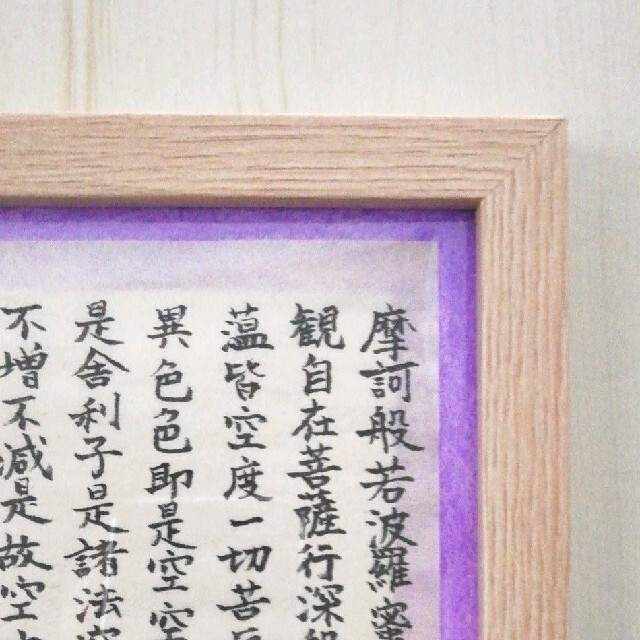 摩訶般若波羅蜜
観自在菩薩行深般
薀皆空度一切苦厄
異色色即是空空
是舎利子是諸法空
不増不減是故空中